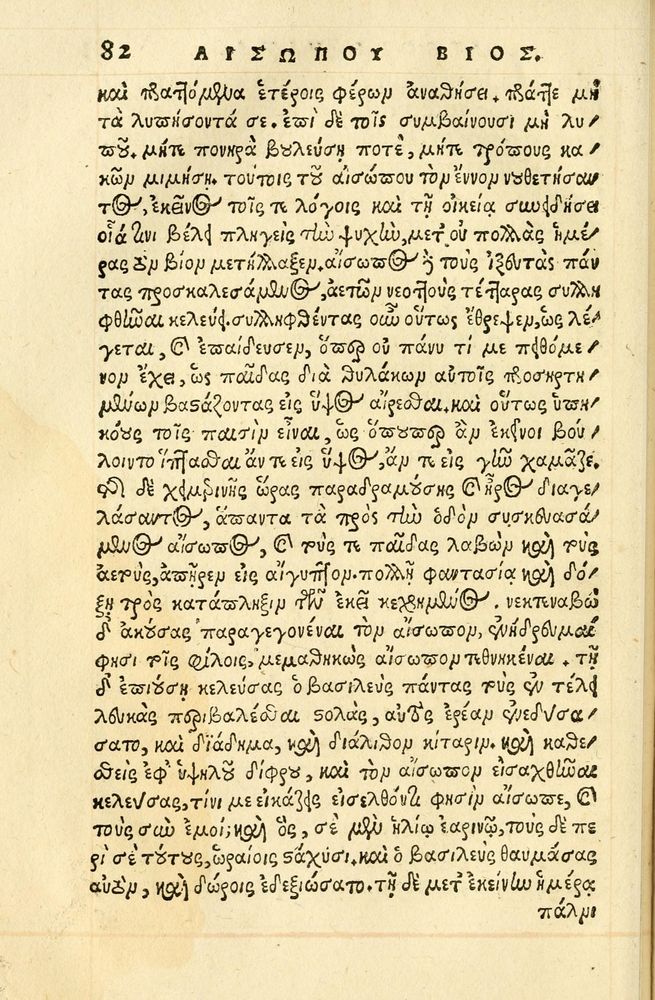 82 ΑΙΣΩΠΟΥ ΒΙΟΣ.
καὶ πλαττόμενα ἑτέροις φέρων ἀναθήσει. πλάττε μὴ
τὰ λυπήσοντά σε. ἐπὶ δὲ τοῖς συμβαίνουσι μὴ λυ-
ποῦ. μήτε πονηρὰ βουλεύσῃ ποτὲ, μήτε τρόπους κα-
κῶν μιμήσῃ. τούτοις τοῦ αἰσώπου τὸν ἔννον νουθετήσαν
τος, ἐκεῖνος τοῖς τε λόγοις καὶ τῇ οἰκείᾳ συνειδήσει
οἷά τινι βέλει πληγεὶς τὴν ψυχὴν, μετ' οὐ πολλὰς ἡμέ-
ρας τὸν βίον μετήλλαξεν. αἴσωπος δὲ τοὺς ἰξευτὰς πάν
τας προσκαλεσάμενος, ἀετῶν νεοττοὺς τέτταρας συλλη
φθῆναι κελεύει. συλληφθέντας οὖν οὕτως ἔθρεψεν, ὡς λέ-
γεται, καὶ ἐπαίδευσεν, ὅπερ οὐ πάνυ τί με πειθόμε-
νον ἔχει, ὡς παῖδας διὰ θυλάκων αὐτοῖς προσηρτη-
μένων βαστάζοντας εἰς ὕψος αἴρεσθαι. καὶ οὕτως ὑπη-
κόους τοῖς παισὶν εἶναι, ὡς ὅπουπερ ἂν ἐκεῖνοι βού-
λοιντο ἵπτασθαι ἄν τε εἰς ὕψος, ἄν τε εἰς γῆν χαμᾶζε.
τῆς δὲ χειμερινῆς ὥρας παραδραμούσης καὶ ἦρος διαγε-
λάσαντος, ἅπαντα τὰ πρὸς τὴν ὁδὸν συσκευασά-
μενος αἴσωπος, καὶ τούς τε παῖδας λαβὼν καὶ τοὺς
ἀετοὺς, ἀπῇρεν εἰς αἴγυπτον. πολλῇ φαντασίᾳ καὶ δό-
ξῃ πρὸς κατάπληξιν τῶν ἐκεῖ κεχρημένος. νεκτεναβὼ
δ' ἀκούσας παραγεγονέναι τὸν αἴσωπον, ἐνήδρευμαί
φησι τοῖς φίλοις, μεμαθηκὼς αἴσωπον τεθνηκέναι. τῇ
δ' ἐπιούσῃ κελεύσας ὁ βασιλεὺς πάντας τοὺς ἐν τέλει
λευκὰς περιβαλέσθαι στολὰς, αὐτὸς ἐρέαν ἐνεδύσα-
σατο, καὶ διάδημα, καὶ διάλιθον κίταριν. καὶ καθε-
σθεὶς ἐφ' ὑψηλοῦ δίφρου, καὶ τὸν αἴσωπον εἰσαχθῆναι
κελεύσας, τίνι με εἰκάζεις εἰσελθόντι φησὶν αἴσωπε, καὶ
τοὺς σὺν ἐμοί; καὶ ὃς, σὲ μὲν ἡλίῳ ἐαρινῷ, τοὺς δὲ πε
ρὶ σὲ τούτους, ὡραίοις στάχυσι. καὶ ὁ βασιλεὺς θαυμάσας
αὐτὸν, καὶ δώροις ἐδεξιώσατο. τῇ δὲ μετ' ἐκείνην ἡμέρᾳ
πάλιν